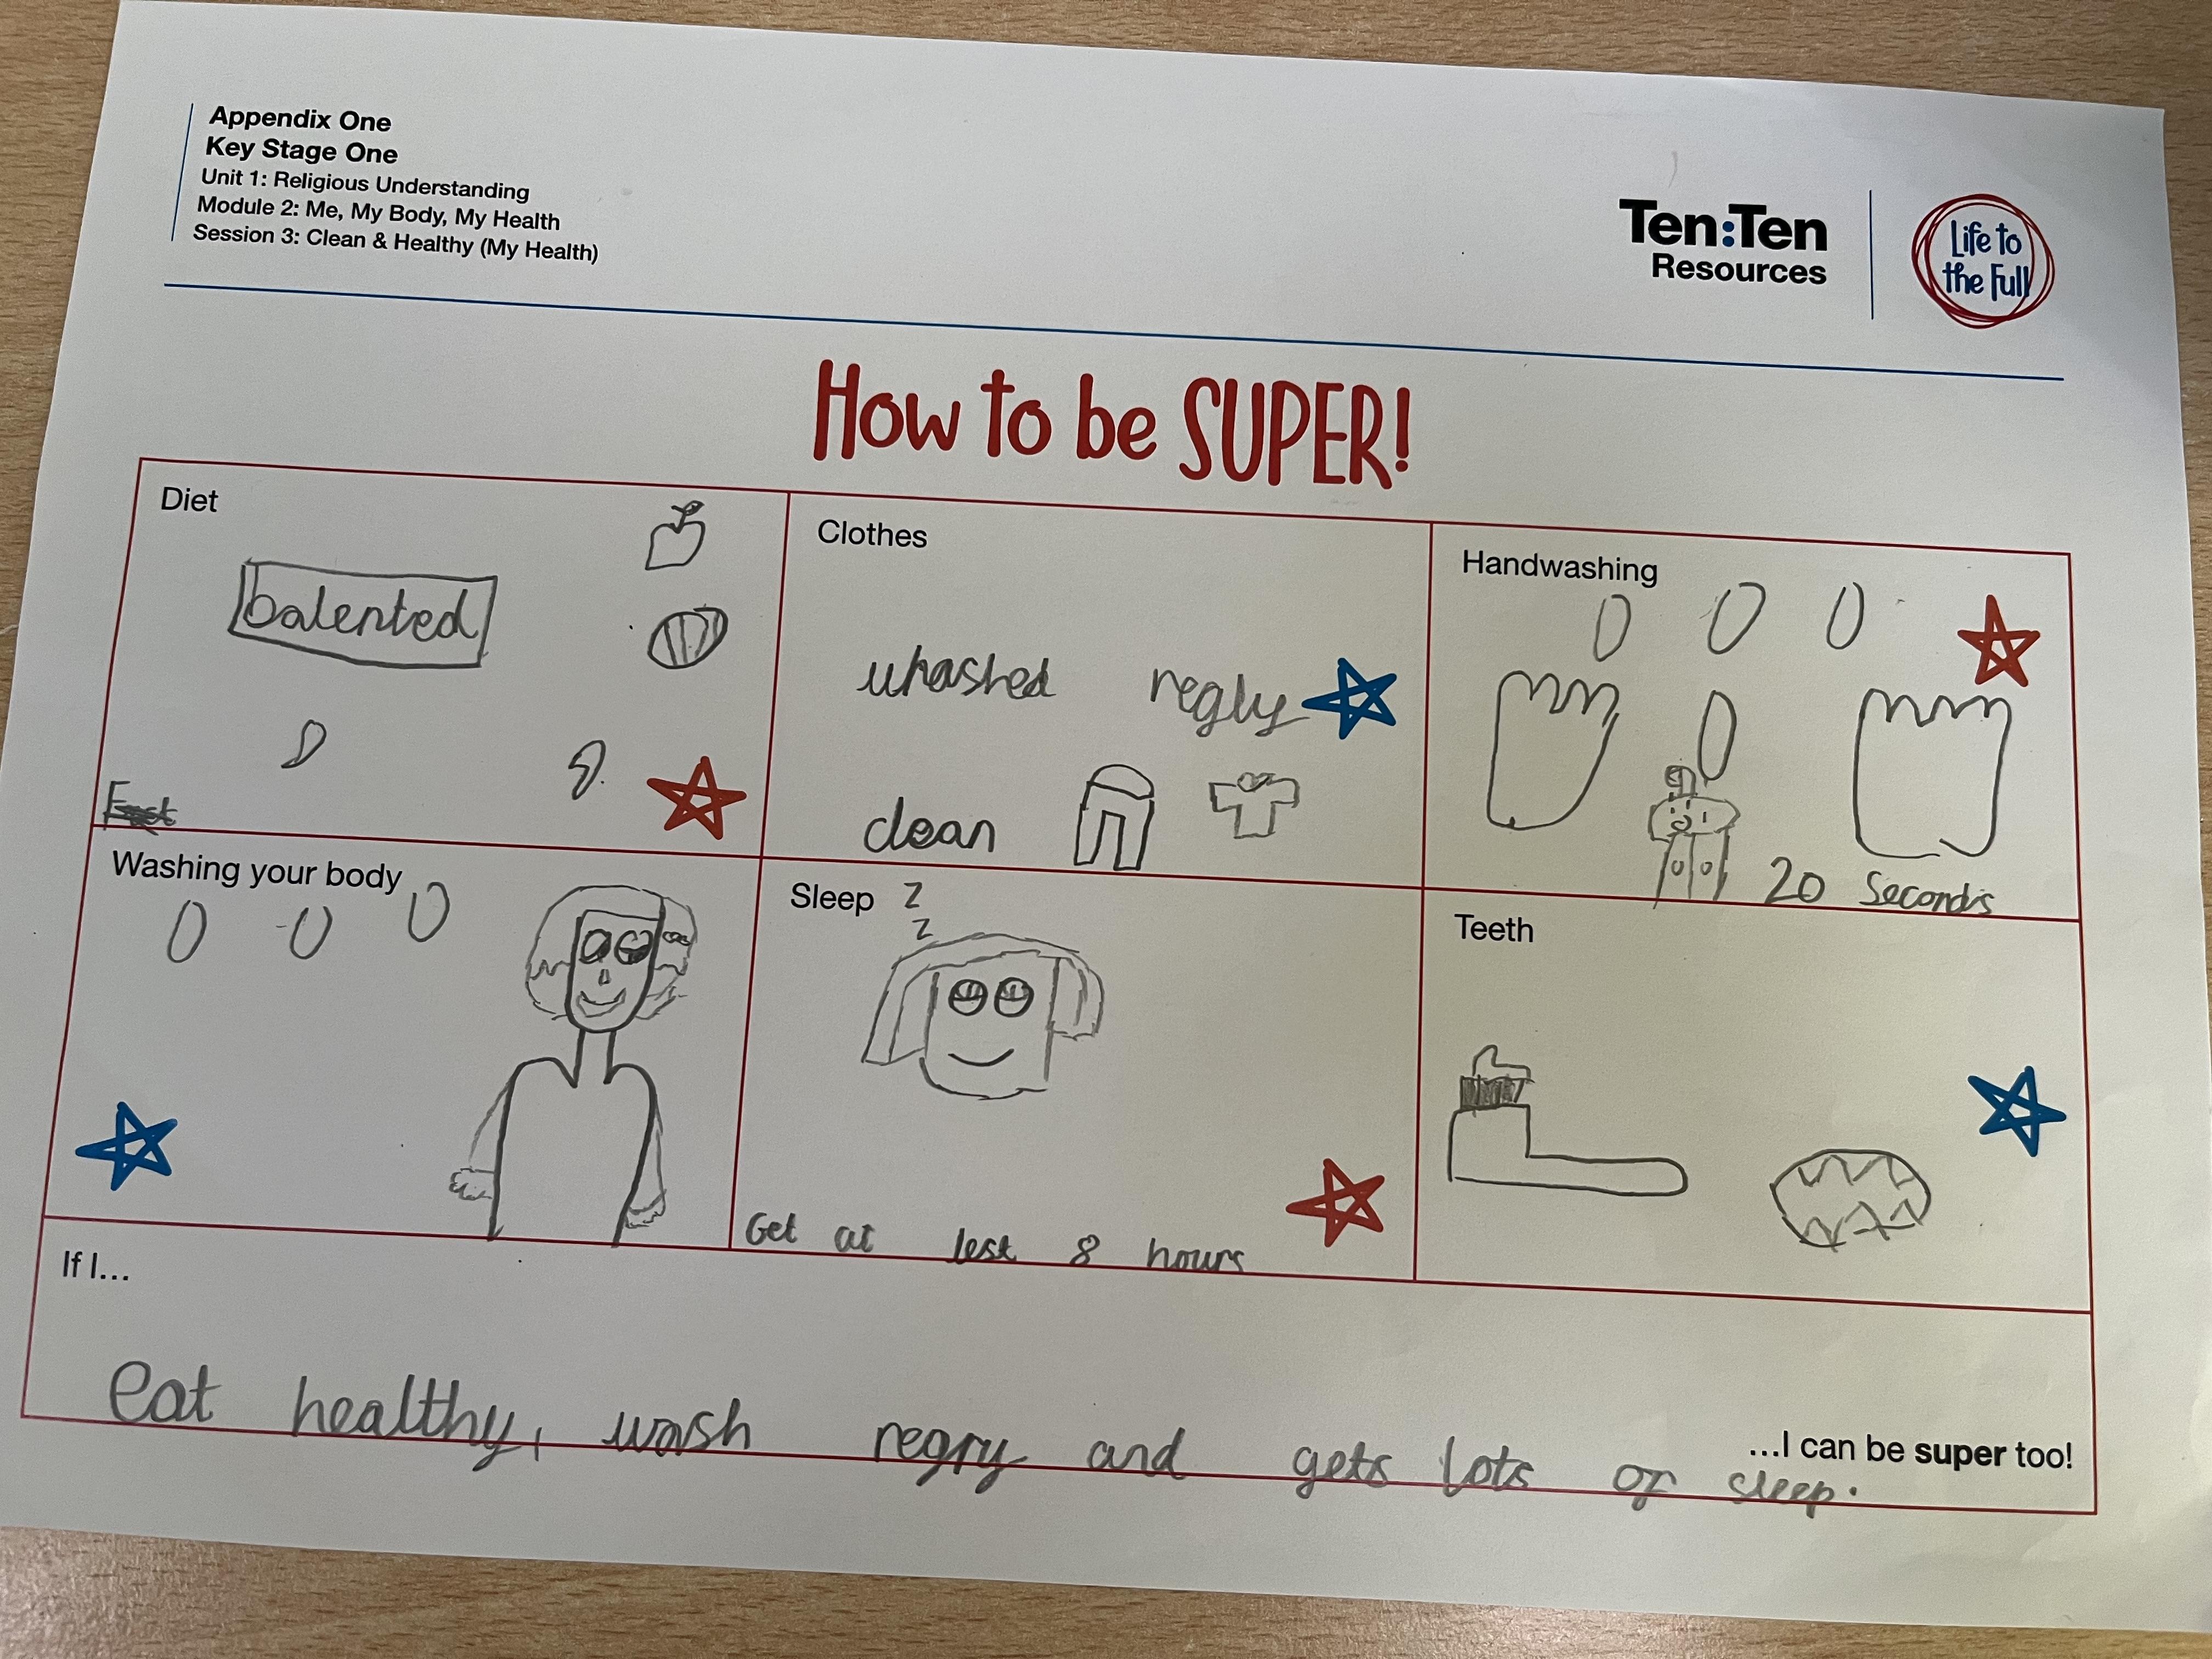 Appendix One
Key Stage One
Unit 1: Religious Understanding
Module 2: Me, My Body, My Health
Session 3: Clean & Healthy (My Health)
Ten:Ten
Resources
Life to
the Full
How to be SUPER!
Diet
balented
Clothes
whashed regly
clean
Handwashing
20 Seconds
Washing your body
Sleep z
z
Get at lest 8 hours
Teeth
If I...
eat healthy, wash regry and gets lots of sleep.
...I can be super too!